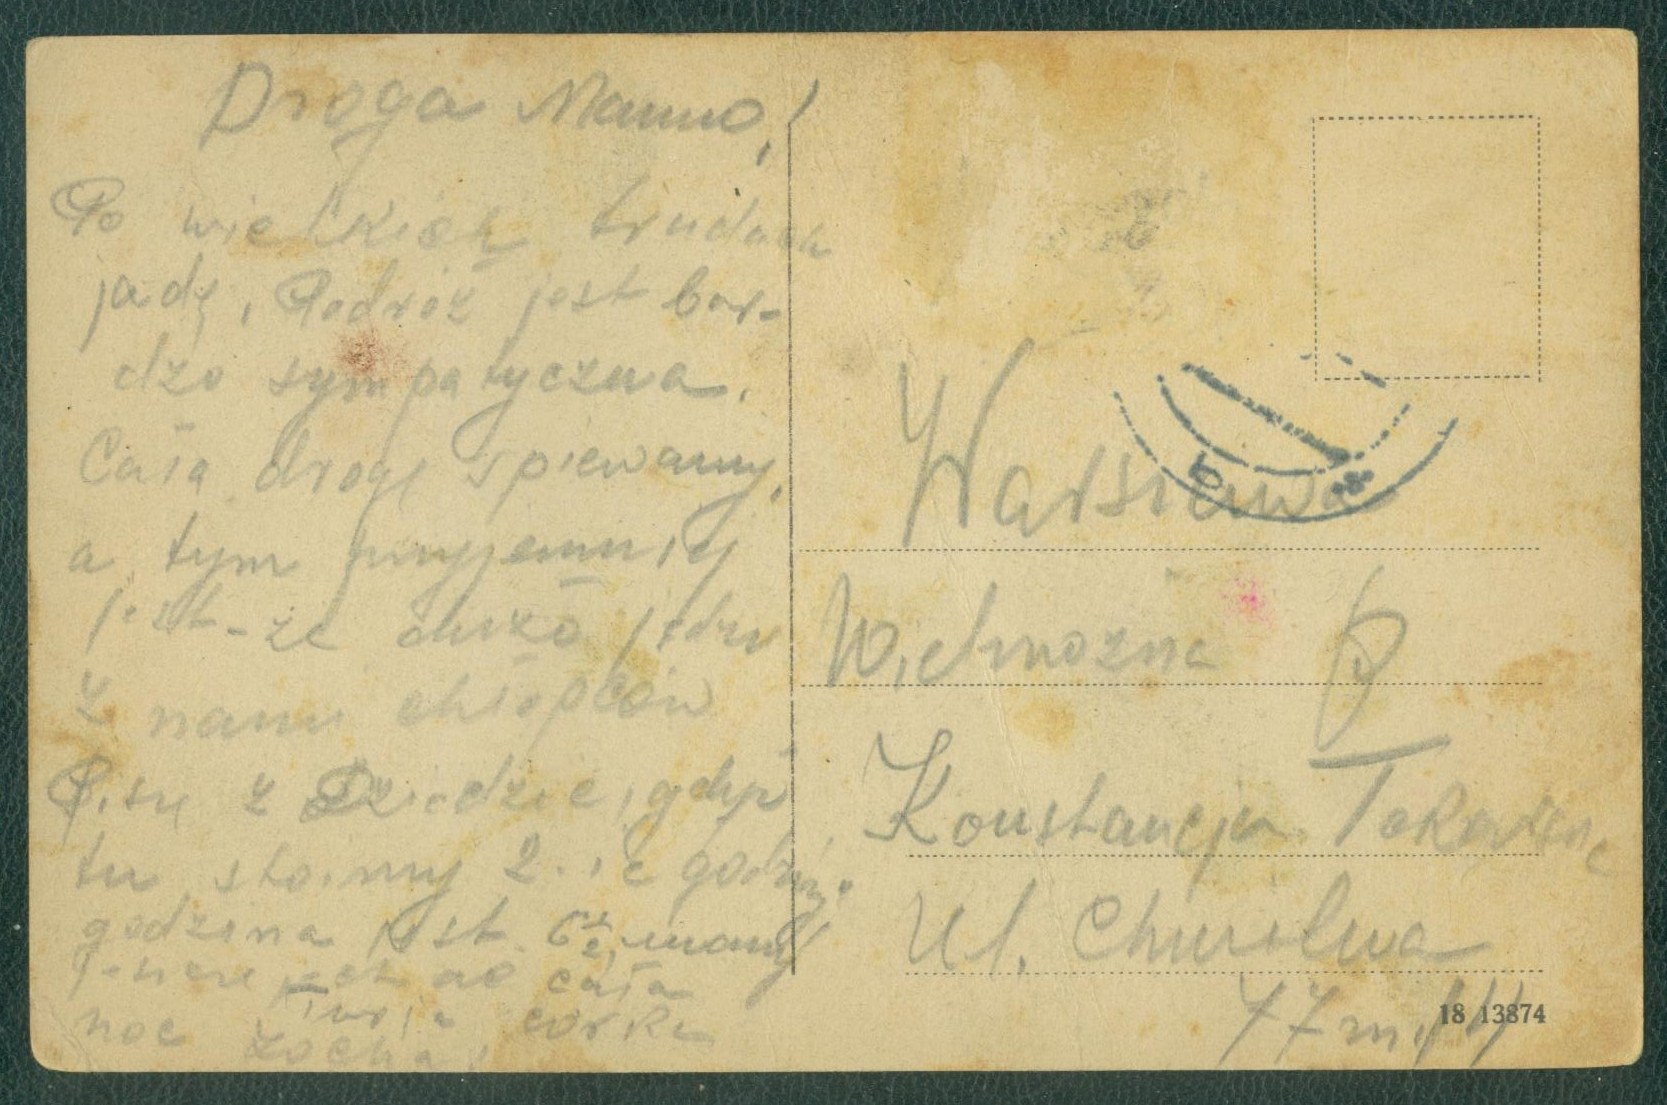 Droga Mamo!
Po wielkich trudach
jadę, Podróż jest bar-
dzo sympatyczna.
Całą drogę śpiewamy,
a tym przyjemniej
jest-że dużo jedzie
z nami chłopców
Piszę z Dziedzic, gdyż
tu stoimy 2.ie godziny.
godzina jest 6½, mamy
jechać całą
noc Twoja córka
Zocha
Warszawa
Wielmożna P
Konstancja
Ul. Chmielna
77 m. 14
18 13874
b